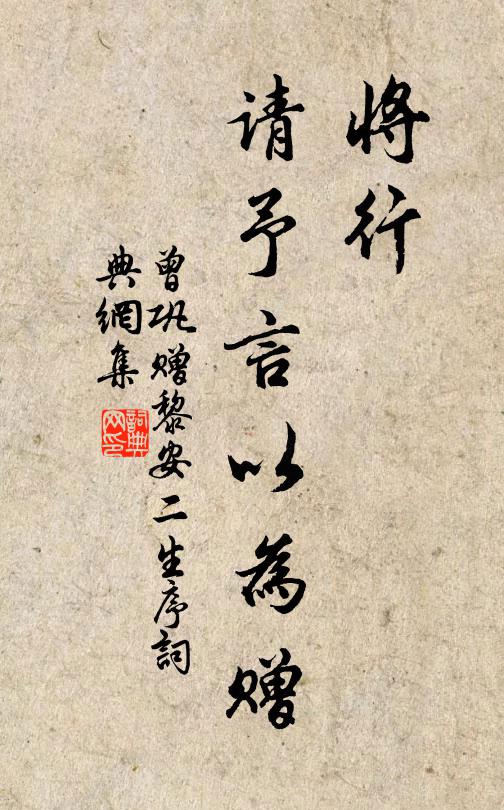 将行
请予言以為赠
曾巩赠黎安二生序詞
典網集
詞典
网印